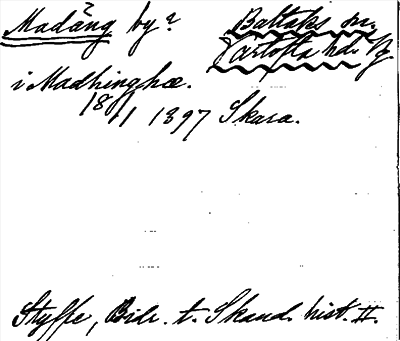 Madäng by?
Baltaks sn.
Vartofta hd. Vg.
i Madhinghæ.
18/11 1397 Skara.
Styffe, Bidr. t. Skand. hist. II.